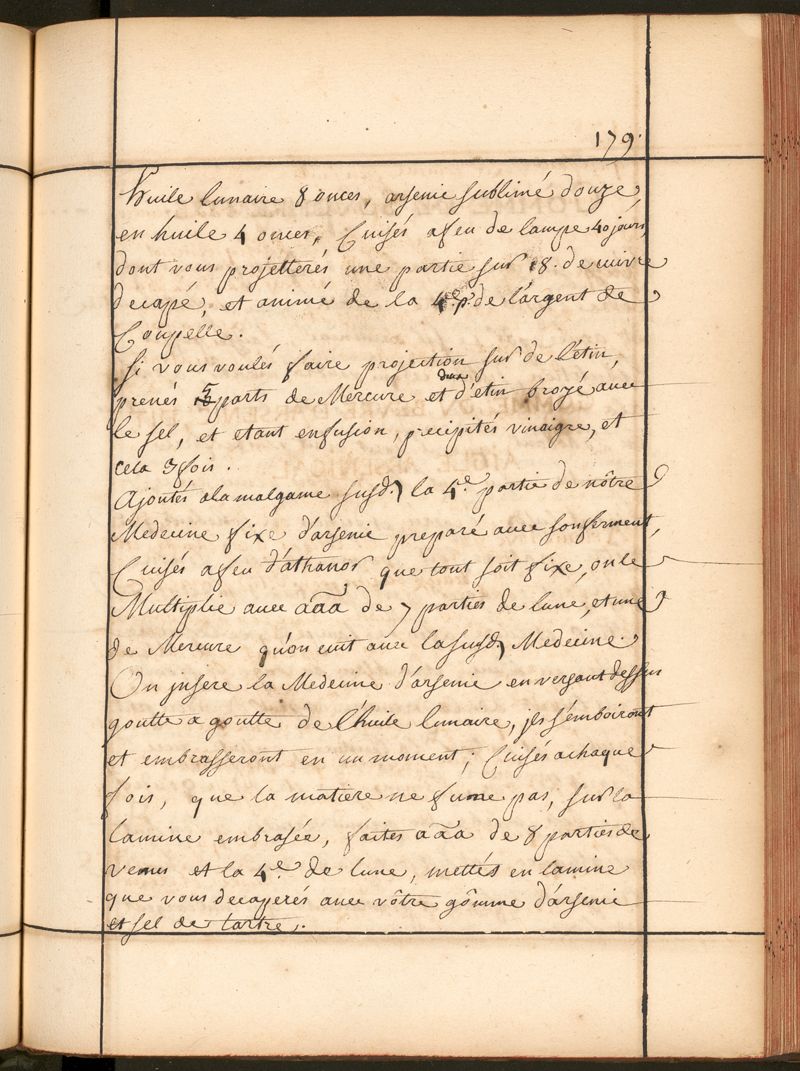 179.
Huile lunaire 8 onces, arsenic sublimé douze,
en huile 4 onces, Cuisés a feu de lampe 40 jours,
dont vous projetterés une partie sur 18. de cuivre
decapé, et animé de la 4.e p. de l'argent de
Coupelle.
Si vous voulés faire projection sur de l'étin,
prenés 5 parts de Mercure et deux d'etin broyé avec
le sel, et etant enfusion, precipités vinaigre, et
cela 3 fois.
Ajoutés alamalgame susd.) la 4.e partie de nôtre
Medecine fixe d'arsenic preparé avec son ferment,
Cuisés a feu d'athanor que tout soit fixe, on le
Multiplie avec aãã de 7 parties de lune, et une
de Mercure qu'on cuit avec la susd.) Medecine.
On jnsere la Medecine d'arsenic en versant dessus
goutte a goutte de l'huile lunaire, jls s'emboiront
et embrasseront en un moment; Cuisés achaque
fois, que la matiere ne fume pas, sur la
lamine embrasée, faites aãã de 8 parties de
venus et la 4.e de lune, mettés en lamine
que vous decaperés avec vôtre gômme d'arsenic
et sel de tartre.